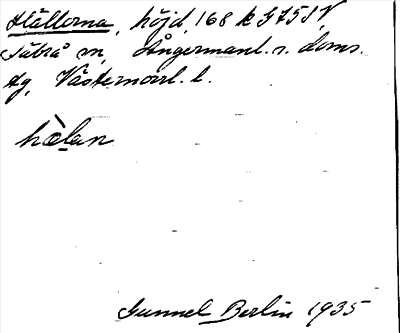 Hällorna, höjd, 168 k G75SV,
Säbrå sn, Ångermanl. s. doms.
tg, Västernorrl. l.
hæ̀lan
Gunnel Berlin 1935